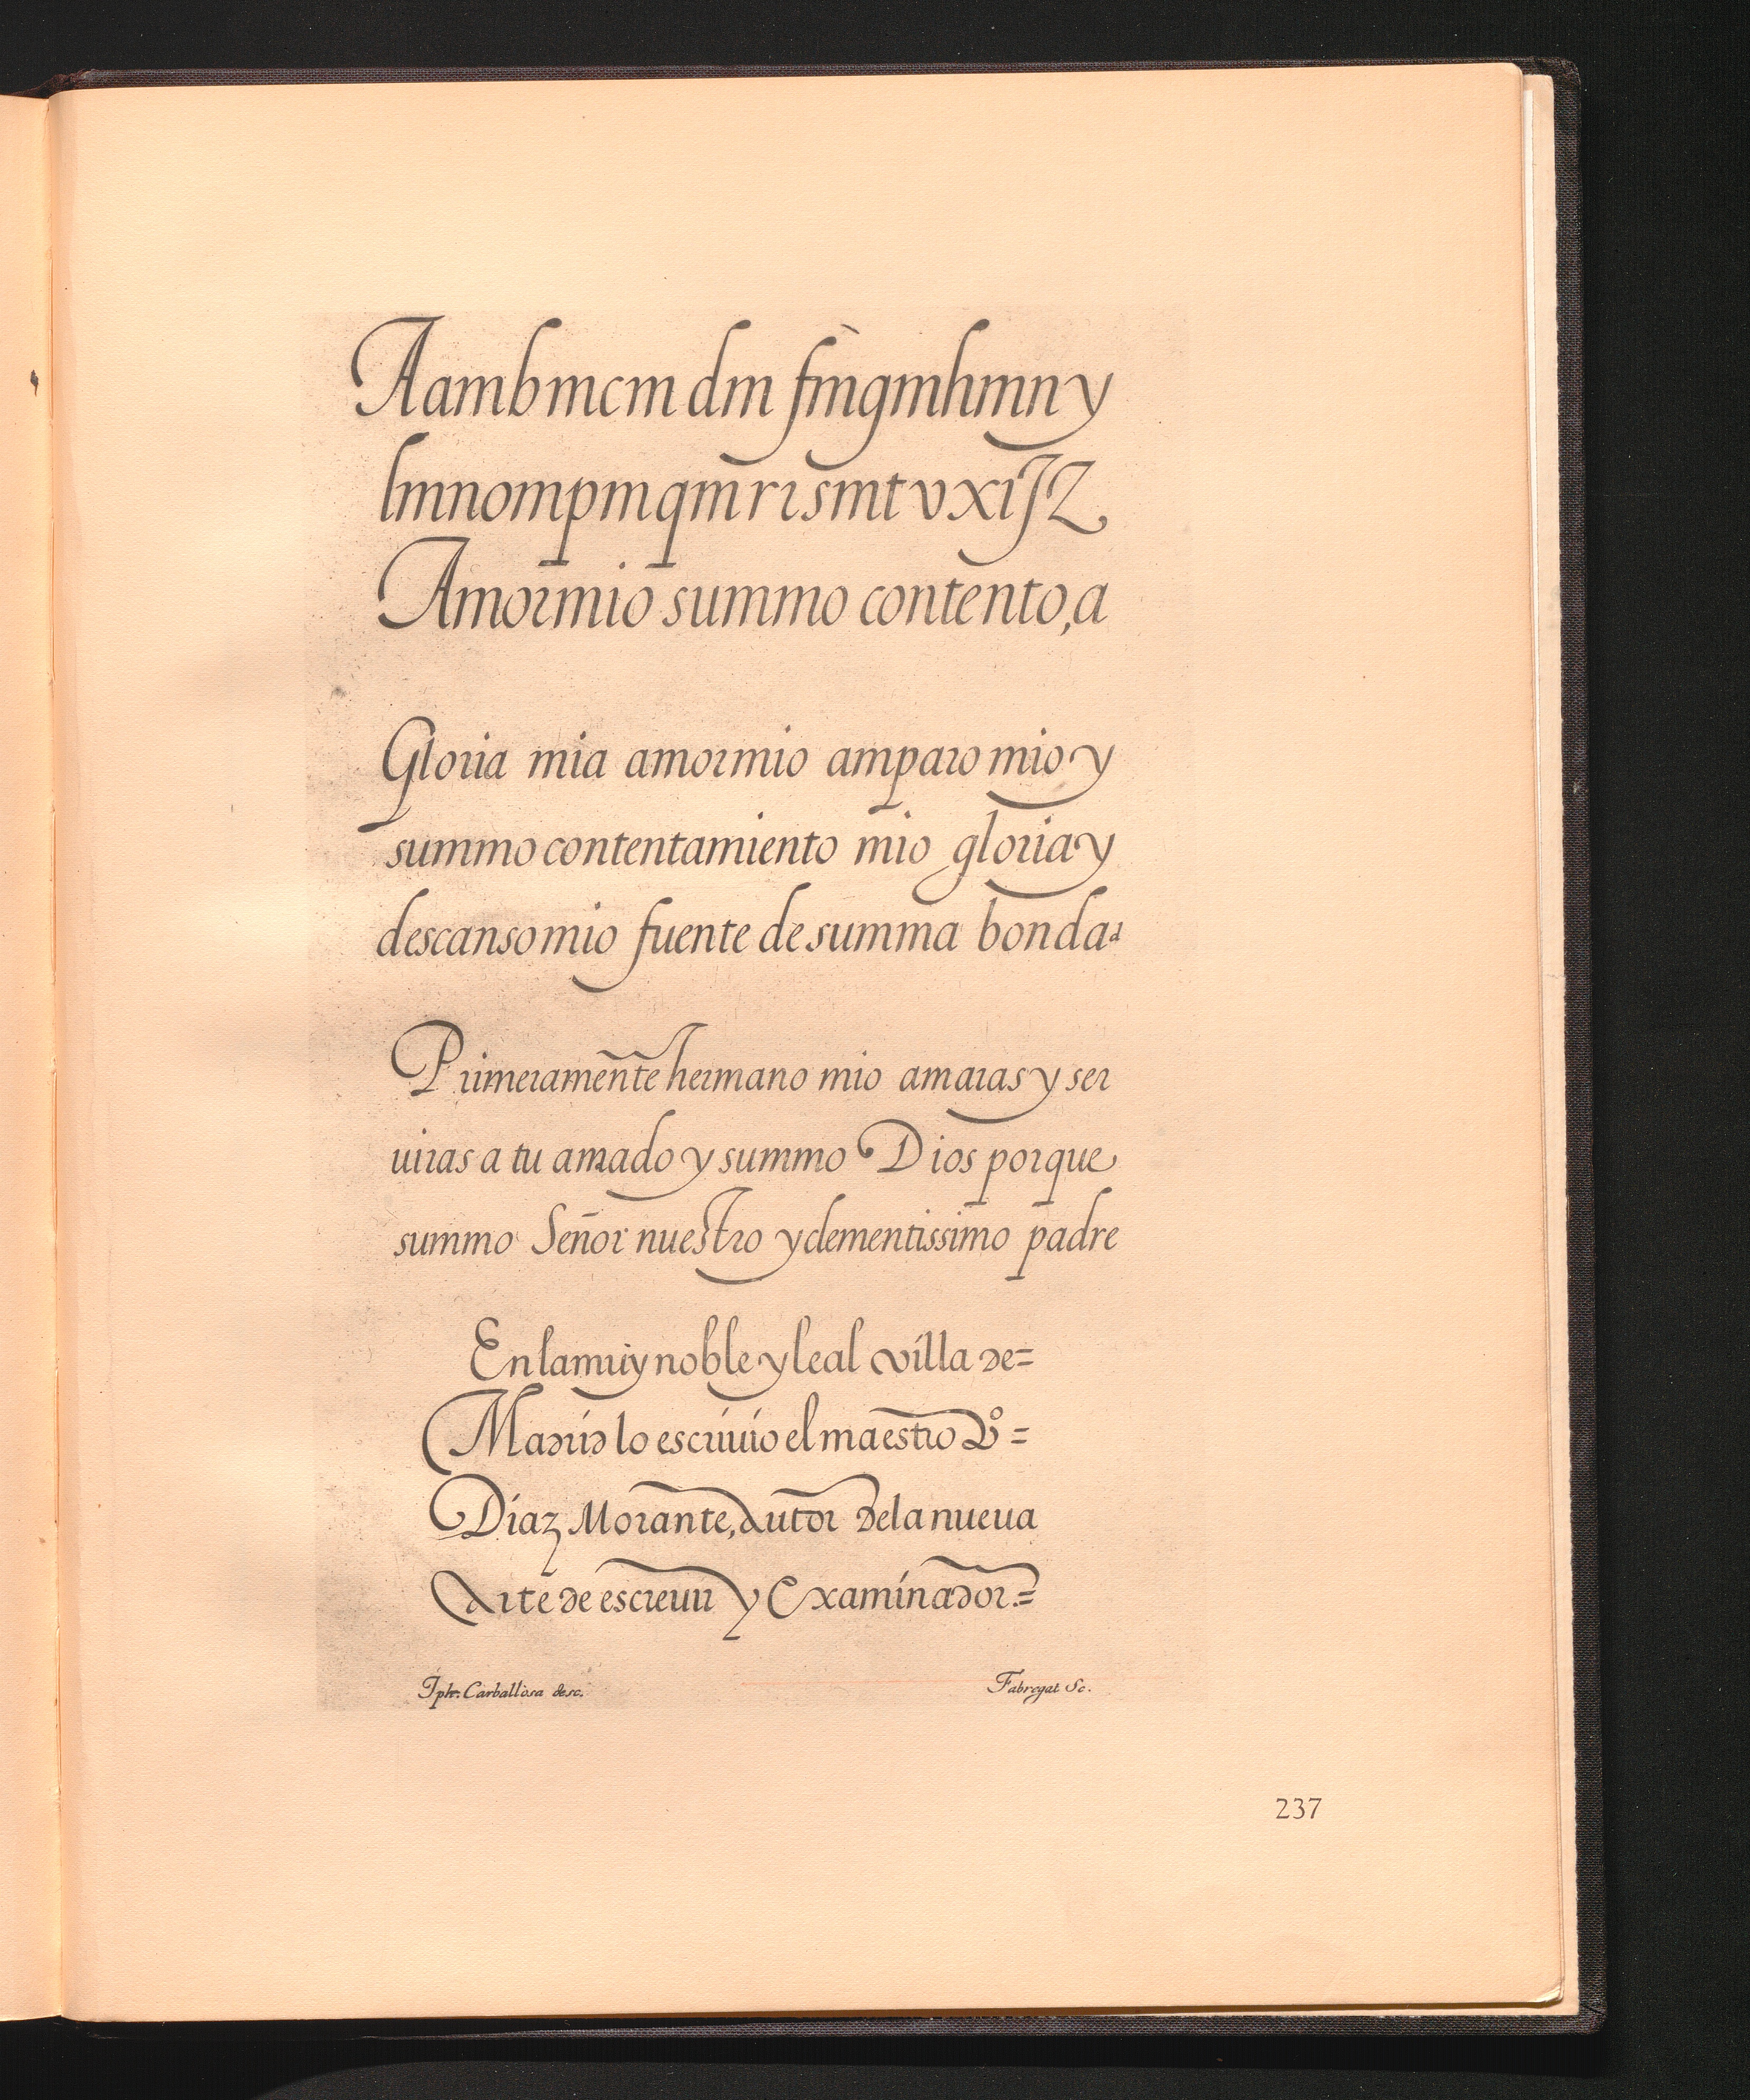 Aambmcm dm fmgmhmny
lmnompmqmrısmtvxıJZ
Amormio summo contento,a
Gloria mia amormio amparo mio y
summo contentamiento mio gloria y
descanso mio fuente de summa bondad
Primeramente hermano mio amaras y ser
uiras a tu amado y summo Dios porque
summo Señor nuestro y clementissimo padre
En la muy noble y leal villa de=
Madrid lo escriuio el maestro Pº=
Díaz Morante, autor de la nueua
Arte de escreuir y Examinador.=
Jph. Carballosa desc.
Fabregat Sc.
237